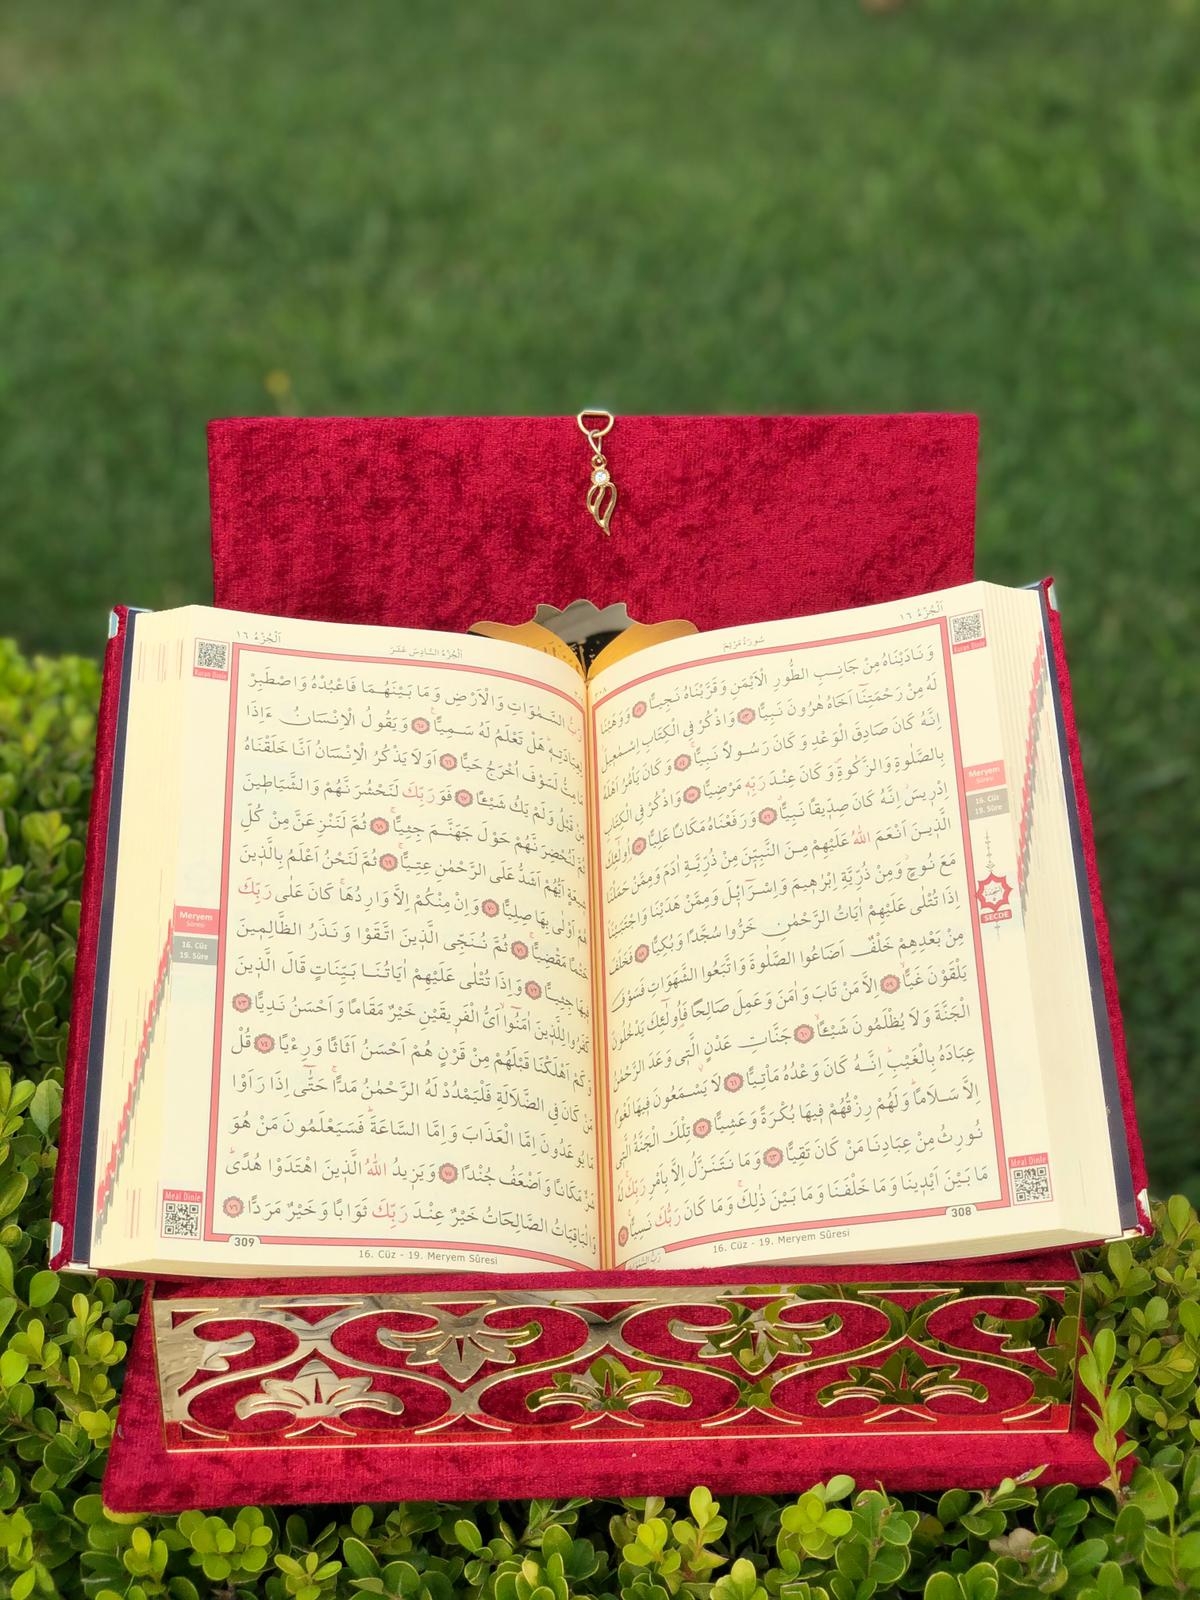 اَلْجُزْءُ ١٦
سُورَةُ مَرْيَمَ
Kuran Dinle
وَنَادَيْنَاهُ مِنْ جَانِبِ الطُّورِ الْاَيْمَنِ وَقَرَّبْنَاهُ نَجِيًّا ٥٢ وَوَهَبْنَا
لَهُ مِنْ رَحْمَتِنَٓا اَخَاهُ هٰرُونَ نَبِيًّا ٥٣ وَاذْكُرْ فِي الْكِتَابِ اِسْمٰعٖيلَ
اِنَّهُ كَانَ صَادِقَ الْوَعْدِ وَكَانَ رَسُولًا نَبِيًّا ٥٤ وَكَانَ يَأْمُرُ اَهْلَهُ
بِالصَّلٰوةِ وَالزَّكٰوةِ وَكَانَ عِنْدَ رَبِّهٖ مَرْضِيًّا ٥٥ وَاذْكُرْ فِي الْكِتَابِ
اِدْرٖيسَ اِنَّهُ كَانَ صِدّٖيقًا نَبِيًّا ٥٦ وَرَفَعْنَاهُ مَكَانًا عَلِيًّا ٥٧ اُولٰٓئِكَ
الَّذٖينَ اَنْعَمَ اللّٰهُ عَلَيْهِمْ مِنَ النَّبِيّٖنَ مِنْ ذُرِّيَّةِ اٰدَمَ وَمِمَّنْ حَمَلْنَا
مَعَ نُوحٍ وَمِنْ ذُرِّيَّةِ اِبْرٰهٖيمَ وَاِسْرَٓائٖلَ وَمِمَّنْ هَدَيْنَا وَاجْتَبَيْنَا
اِذَا تُتْلٰى عَلَيْهِمْ اٰيَاتُ الرَّحْمٰنِ خَرُّوا سُجَّدًا وَبُكِيًّا ٥٨ فَخَلَفَ
مِنْ بَعْدِهِمْ خَلْفٌ اَضَاعُوا الصَّلٰوةَ وَاتَّبَعُوا الشَّهَوَاتِ فَسَوْفَ
يَلْقَوْنَ غَيًّا ٥٩ اِلَّا مَنْ تَابَ وَاٰمَنَ وَعَمِلَ صَالِحًا فَاُولٰٓئِكَ يَدْخُلُونَ
الْجَنَّةَ وَلَا يُظْلَمُونَ شَيْـًٔا ٦٠ جَنَّاتِ عَدْنٍ الَّتٖي وَعَدَ الرَّحْمٰنُ
عِبَادَهُ بِالْغَيْبِ اِنَّهُ كَانَ وَعْدُهُ مَأْتِيًّا ٦١ لَا يَسْمَعُونَ فٖيهَا لَغْوًا
اِلَّا سَلَامًا وَلَهُمْ رِزْقُهُمْ فٖيهَا بُكْرَةً وَعَشِيًّا ٦٢ تِلْكَ الْجَنَّةُ الَّتٖي
نُورِثُ مِنْ عِبَادِنَا مَنْ كَانَ تَقِيًّا ٦٣ وَمَا نَتَنَزَّلُ اِلَّا بِاَمْرِ رَبِّكَ لَهُ
مَا بَيْنَ اَيْدٖينَا وَمَا خَلْفَنَا وَمَا بَيْنَ ذٰلِكَ وَمَا كَانَ رَبُّكَ نَسِيًّا ٦٤
Meryem
Sûresi
16. Cüz
19. Sûre
SECDE
Meal Dinle
308
16. Cüz - 19. Meryem Sûresi
اَلْجُزْءُ ١٦
اَلْجُزْءُ السَّادِسَ عَشَرَ
Kuran Dinle
رَبُّ السَّمٰوَاتِ وَالْاَرْضِ وَمَا بَيْنَهُمَا فَاعْبُدْهُ وَاصْطَبِرْ
لِعِبَادَتِهٖ هَلْ تَعْلَمُ لَهُ سَمِيًّا ٦٥ وَيَقُولُ الْاِنْسَانُ ءَاِذَا
مَا مِتُّ لَسَوْفَ اُخْرَجُ حَيًّا ٦٦ اَوَلَا يَذْكُرُ الْاِنْسَانُ اَنَّا خَلَقْنَاهُ
مِنْ قَبْلُ وَلَمْ يَكُ شَيْـًٔا ٦٧ فَوَرَبِّكَ لَنَحْشُرَنَّهُمْ وَالشَّيَاطٖينَ
ثُمَّ لَنُحْضِرَنَّهُمْ حَوْلَ جَهَنَّمَ جِثِيًّا ٦٨ ثُمَّ لَنَنْزِعَنَّ مِنْ كُلِّ
شٖيعَةٍ اَيُّهُمْ اَشَدُّ عَلَى الرَّحْمٰنِ عِتِيًّا ٦٩ ثُمَّ لَنَحْنُ اَعْلَمُ بِالَّذٖينَ
هُمْ اَوْلٰى بِهَا صِلِيًّا ٧٠ وَاِنْ مِنْكُمْ اِلَّا وَارِدُهَا كَانَ عَلٰى رَبِّكَ
حَتْمًا مَقْضِيًّا ٧١ ثُمَّ نُنَجِّي الَّذٖينَ اتَّقَوْا وَنَذَرُ الظَّالِمٖينَ
فٖيهَا جِثِيًّا ٧٢ وَاِذَا تُتْلٰى عَلَيْهِمْ اٰيَاتُنَا بَيِّنَاتٍ قَالَ الَّذٖينَ
كَفَرُوا لِلَّذٖينَ اٰمَنُٓوا اَيُّ الْفَرٖيقَيْنِ خَيْرٌ مَقَامًا وَاَحْسَنُ نَدِيًّا ٧٣
وَكَمْ اَهْلَكْنَا قَبْلَهُمْ مِنْ قَرْنٍ هُمْ اَحْسَنُ اَثَاثًا وَرِءْيًا ٧٤ قُلْ
مَنْ كَانَ فِي الضَّلَالَةِ فَلْيَمْدُدْ لَهُ الرَّحْمٰنُ مَدًّا حَتّٰٓى اِذَا رَاَوْا
مَا يُوعَدُونَ اِمَّا الْعَذَابَ وَاِمَّا السَّاعَةَ فَسَيَعْلَمُونَ مَنْ هُوَ
شَرٌّ مَكَانًا وَاَضْعَفُ جُنْدًا ٧٥ وَيَزٖيدُ اللّٰهُ الَّذٖينَ اهْتَدَوْا هُدًى
وَالْبَاقِيَاتُ الصَّالِحَاتُ خَيْرٌ عِنْدَ رَبِّكَ ثَوَابًا وَخَيْرٌ مَرَدًّا ٧٦
Meryem
Sûresi
16. Cüz
19. Sûre
Meal Dinle
309
16. Cüz - 19. Meryem Sûresi